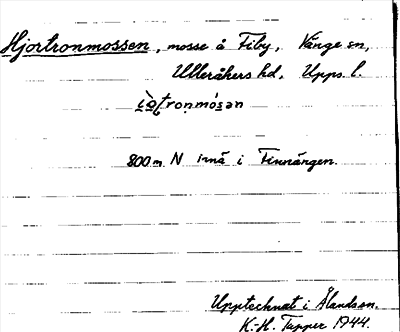 Hjortronmossen, mosse å Fiby, Vänge sn,
Ulleråkers hd. Upps. l.
800 m N små i Finnängen.
Upptecknat i Ålandsn.
K.-H. Tapper 1944.